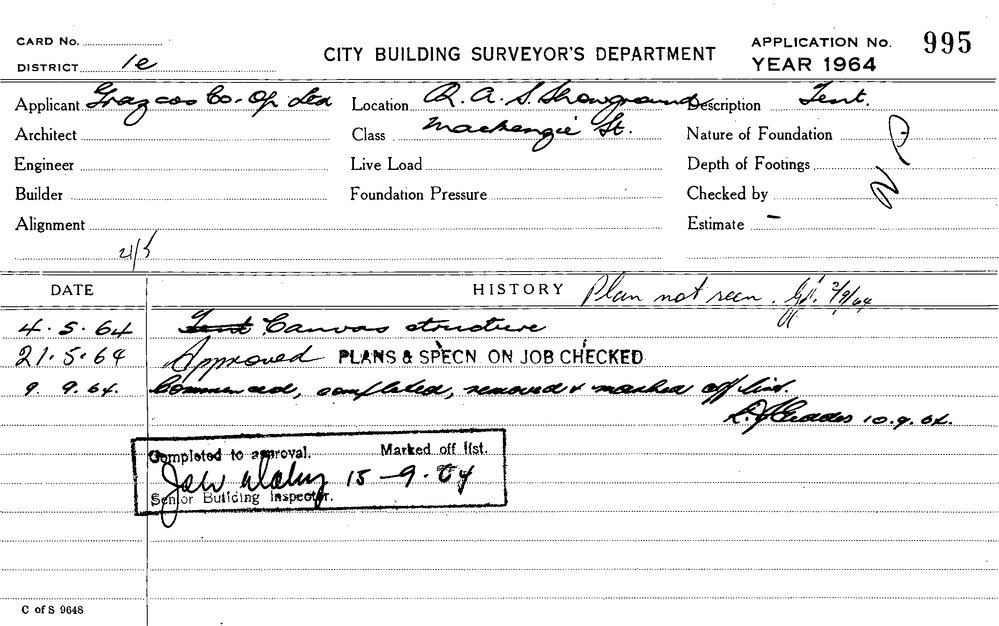 CARD No.
CITY BUILDING SURVEYOR'S DEPARTMENT
APPLICATION No. 995
DISTRICT 1e
YEAR 1964
Applicant Grazcos Co-Op Ltd
Location R. A. S. Showground
Description Tent.
Architect
Class Mackenzie St.
Nature of Foundation
Engineer
Live Load
Depth of Footings
Builder
Foundation Pressure
Checked by
N P
Alignment
Estimate -
21/5
DATE
HISTORY Plan not seen. 2/9/64
4.5.64 Tent Canvas structure
21.5.64 Approved PLANS & SPECN. ON JOB CHECKED
9.9.64. Commenced, completed, removed & marked off list.
10.9.64.
Completed to approval. Marked off list.
15-9-64
Senior Building Inspector.
C of S 9648